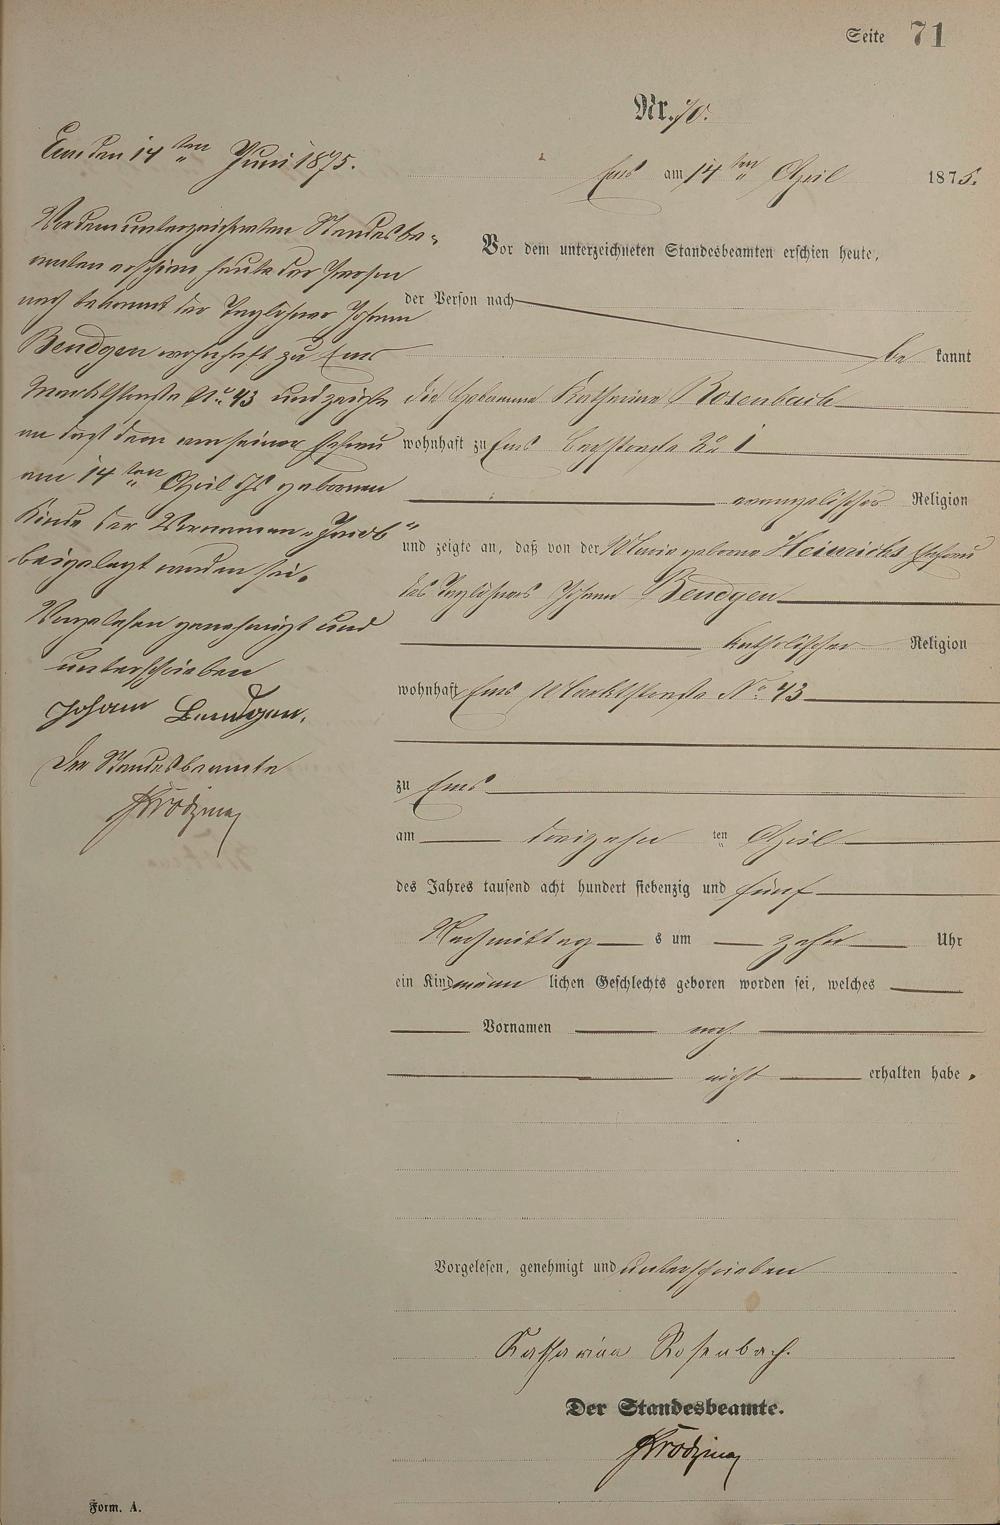 Seite 71
Nr. 70.
Ems am 14 ten April 1875.
Vor dem unterzeichneten Standesbeamten erschien heute,
der Person nach
be kannt
die Hebamme Katharina Rosenbach
wohnhaft zu Ems Bachstraße No 1
evangelischer Religion
und zeigte an, daß von der Maria geborne Heinrichs Ehefrau
des Taglöhners Johann Bendgen
katholischer Religion
wohnhaft Ems Marktstraße No. 43
zu Ems
am dreizehn ten April
des Jahres tausend acht hundert siebenzig und fünf
Nachmittag s um zehn Uhr
ein Kind männ lichen Geschlechts geboren worden sei, welches
Vornamen noch
nicht erhalten habe.
Vorgelesen, genehmigt und unterschrieben
Katharina Rosenbach.
Der Standesbeamte.
Ems den 14 ten Juni 1875.
Vor dem unterzeichneten Standesbe-
amten erschien heute der Person
nach bekannt der Taglöhner Johann
Bendgen wohnhaft zu Ems
Marktstraße No. 43 und zeigte
an daß dem von seiner Ehefrau
am 14 ten April geborenen
Kinde der Vornamen „Jacob“
beigelegt worden sei.
Vorgelesen genehmigt und
unterschrieben
Johann Bendgen.
Der Standesbeamte
Form. A.